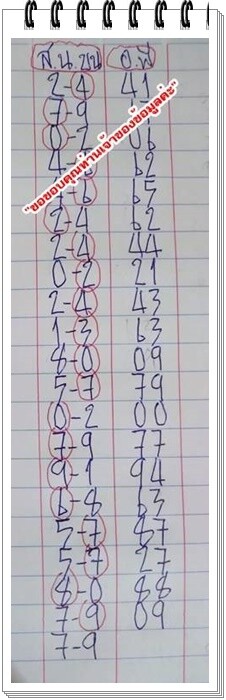 ส น. บน อ. ฟ
2-4 41
7-9
0-2 06
4-6 62
65
2-4 62
2-4 44
0-2 21
2-4 43
1-3 63
8-0 09
5-7 79
0-2 00
7-9 77
9-1 94
6-8 63
5-7 87
5-7 27
8-0 88
7-9 09
7-9
"ขอขอบคุณท่านเจ้าของข้อมูลค่ะ"